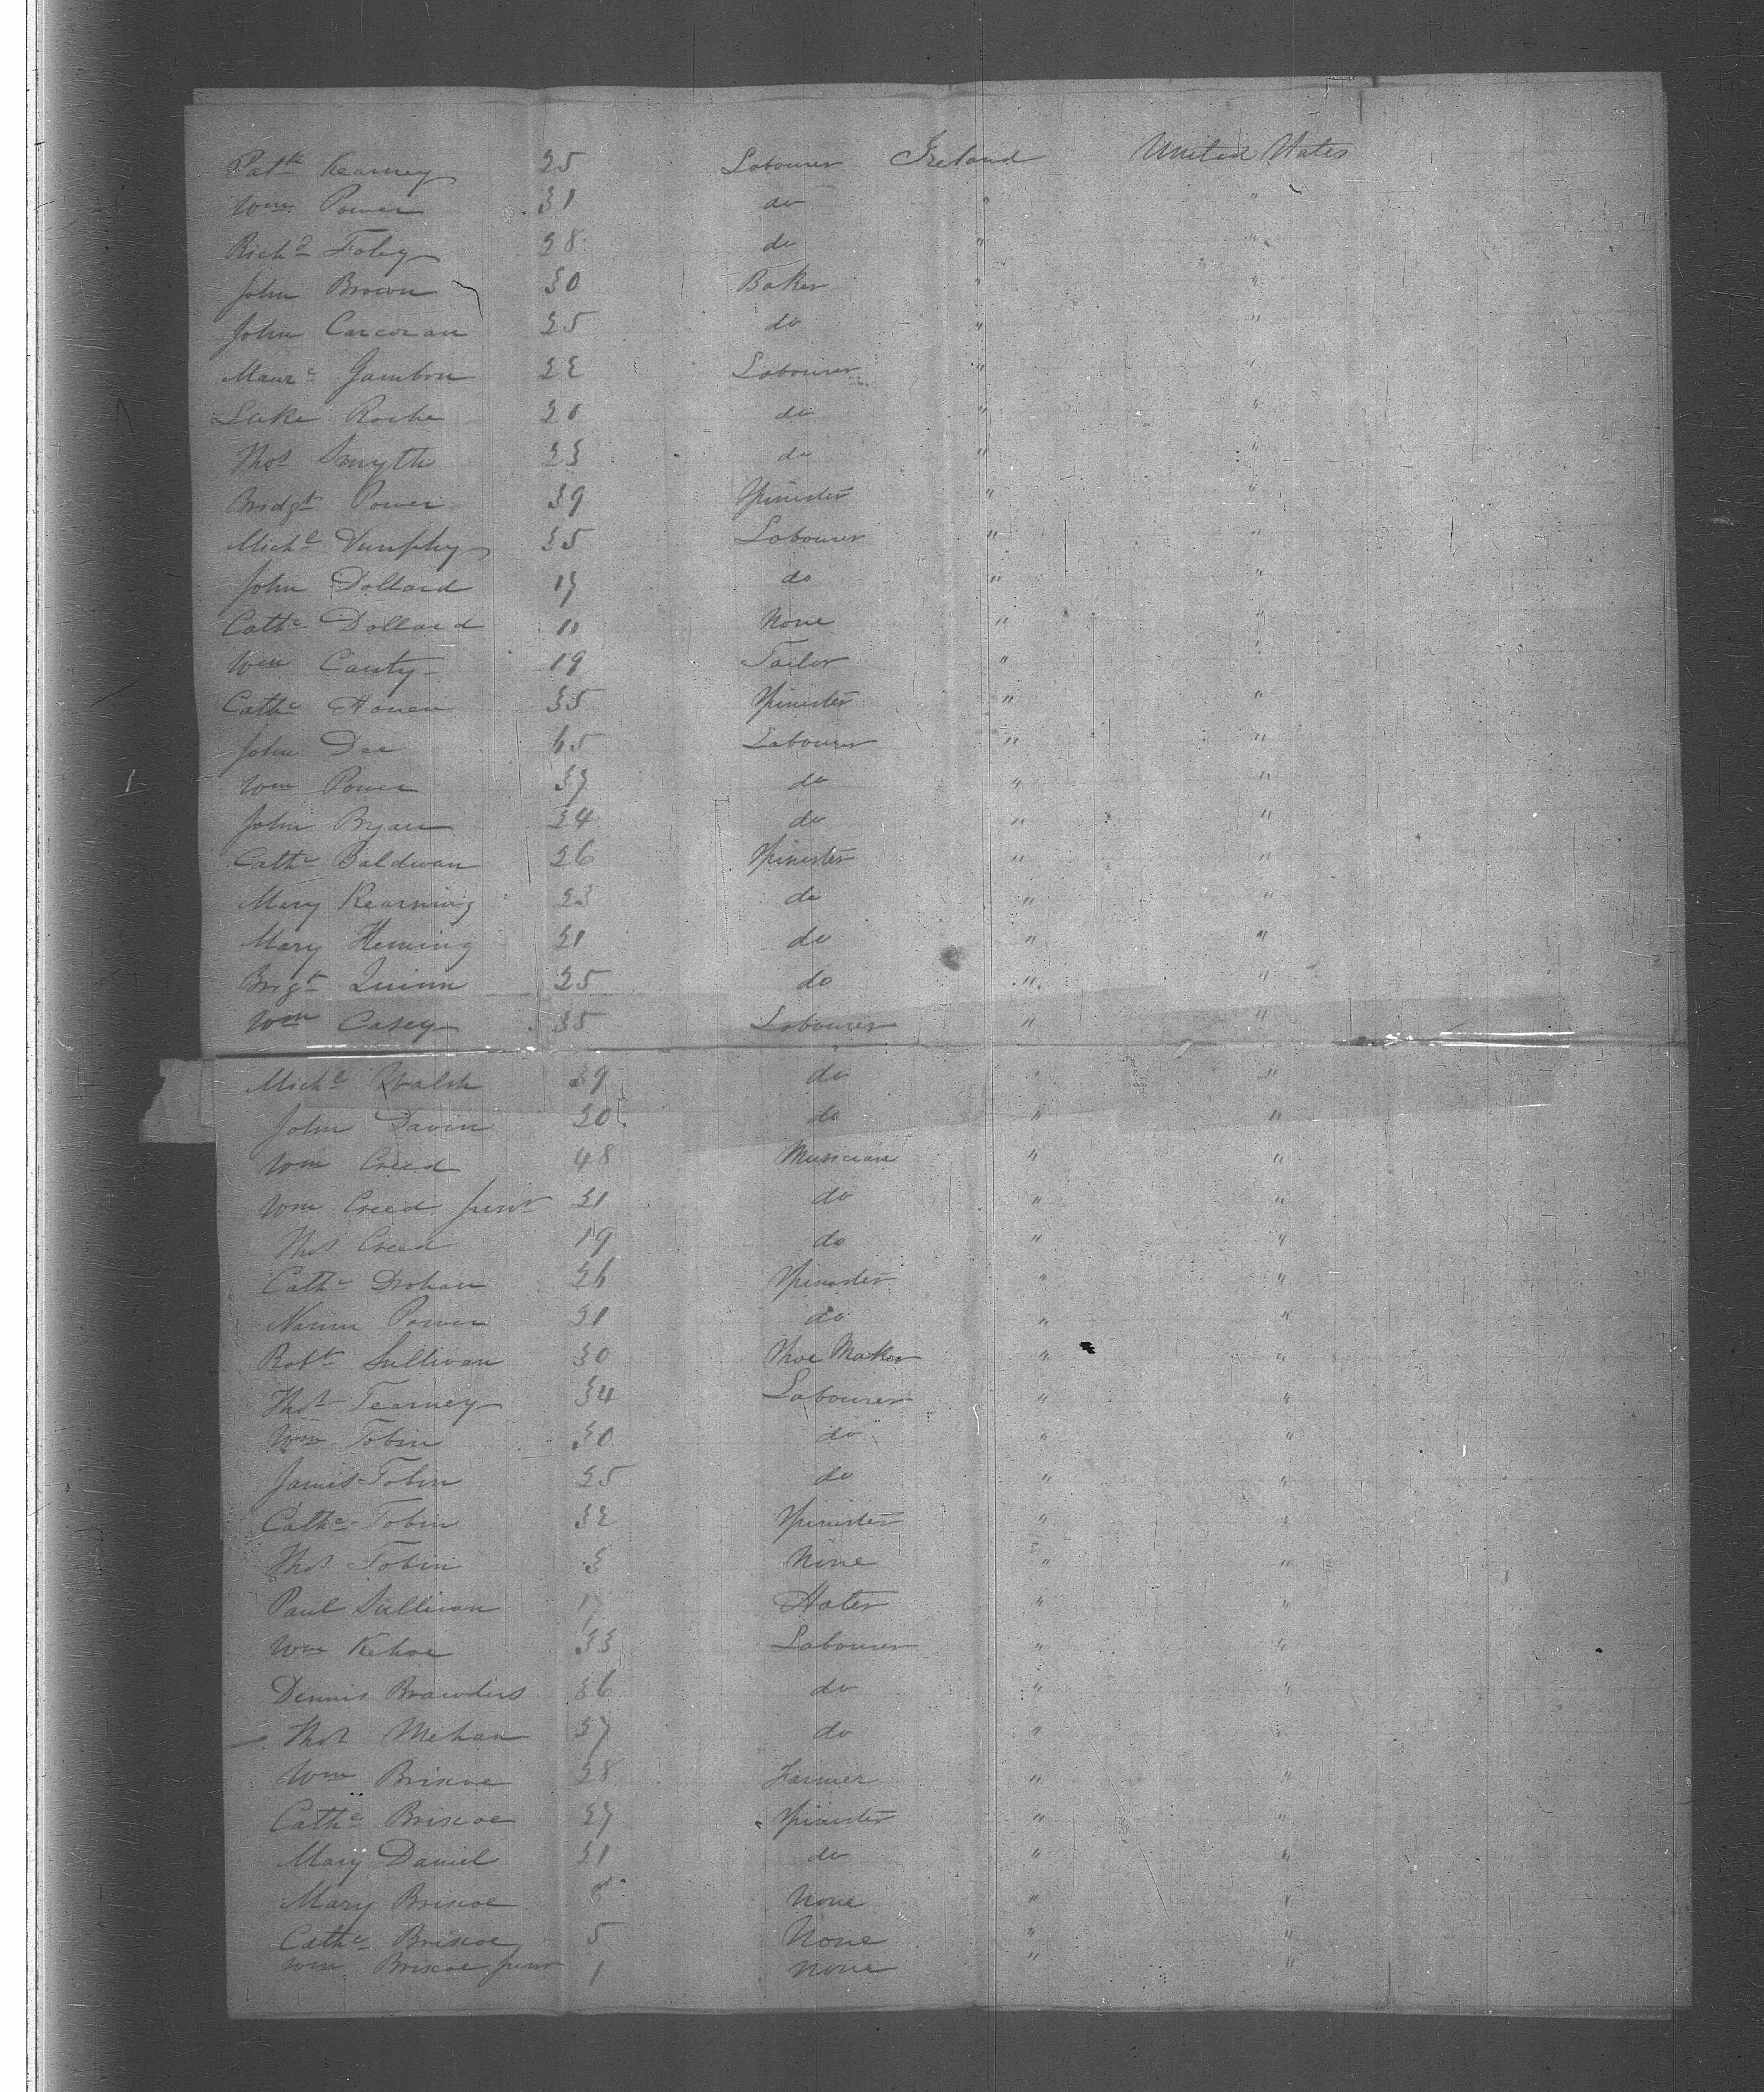 Patk Kearney 25 Labourer Ireland United States
Wm Power 31 do " "
Richd Foley 28 do " "
John Brown 30 Baker " "
John Corcoran 25 do " "
Maurc Gambon 22 Labourer " "
Luke Roche 20 do " "
Thos Smyth 23 do " "
Bridgt Power 39 Spinster " "
Michl Dunphy 35 Labourer " "
John Dollard 17 do " "
Cathe Dollard 11 None " "
Wm Canty 19 Tailor " "
Cathe Honen 35 Spinster " "
John Dee 65 Labourer " "
Wm Power 37 do " "
John Ryan 24 do " "
Cathe Baldwan 26 Spinster " "
Mary Kearning 23 do " "
Mary Heming 21 do " "
Brigt Quinn 25 do " "
Wm Casey 35 Labourer " "
Michl Walsh 39 do " "
John Davin 20 do " "
Wm Creed 48 Musician " "
Wm Creed junr 21 do " "
Thos Creed 19 do " "
Cathe Drohan 26 Spinster " "
Nanm Power 21 do " "
Robt Sullivan 30 Shoe Maker " "
Thos Tearney 34 Labourer " "
Wm Tobin 30 do " "
James Tobin 25 do " "
Cathe Tobin 32 Spinster " "
Thos Tobin 3 None " "
Paul Sullivan 17 Hater " "
Wm Kehoe 33 Labourer " "
Dennis Brawders 36 do " "
Thos Mehan 27 do " "
Wm Briscoe 28 Farmer " "
Cathe Briscoe 27 Spinster " "
Mary Daniel 21 do " "
Mary Briscoe None " "
Cathe Briscoe 5 None " "
Wm Briscoe junr 1 None " "